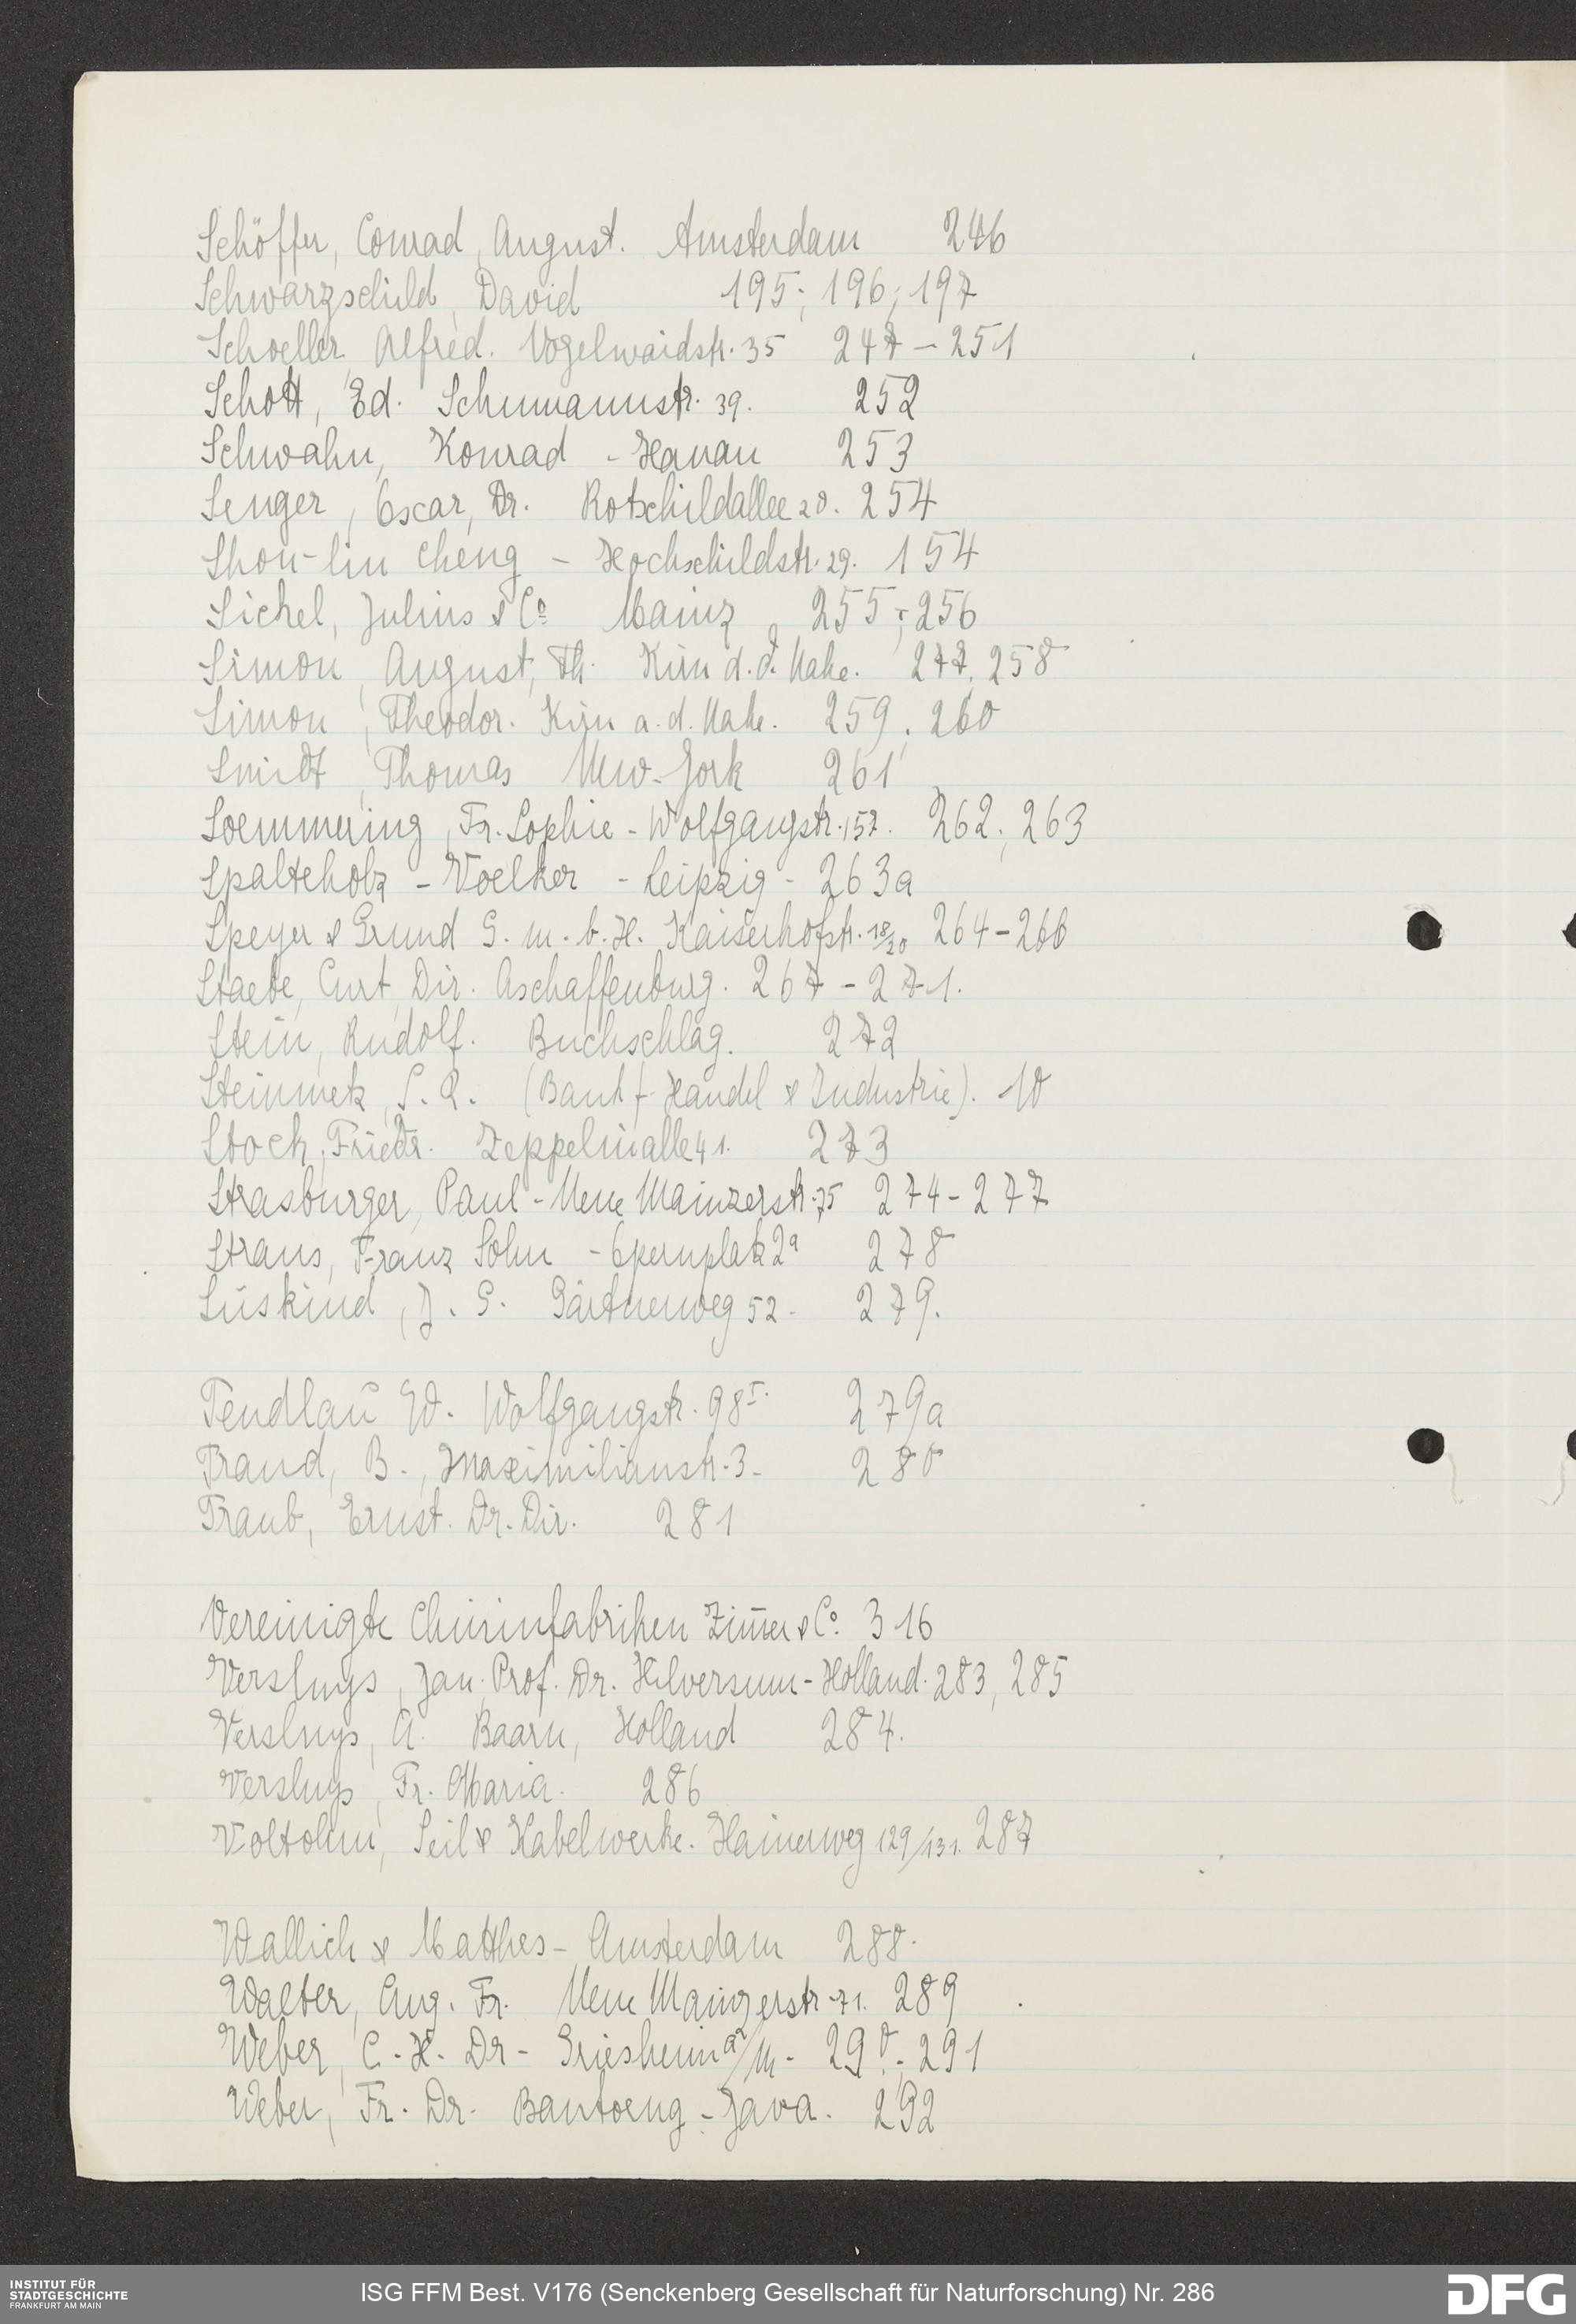 Schöffer, Conrad, August. Amsterdam 246
Schwarzschild, David 195; 196; 197
Schoeller, Alfred. Vogelwaidstr. 35 247 – 251
Schott, Ed. Schumannstr. 39. 252
Schwahn, Konrad - Hanau 253
Senger, Oscar, Dr. Rotschildallee 20. 254
Shou-lin Cheng – Hochschildstr. 29. 154
Sichel, Julius & Co Mainz 255; 256
Simon, August, Th. Kirn d. d. Nahe. 277, 258
Simon, Theodor. Kirn a. d. Nahe. 259, 260
Smidt, Thomas New-Jork 261
Soemmering, Fr. Sophie - Wolfgangstr. 157. 262; 263
Spalteholz - Voelker - Leipzig - 263a
Speyer & Grund G. m. b. H. Kaiserhofstr. 18/20 264-266
Staebe, Curt, Dir. Aschaffenburg. 267 - 271.
Stein, Rudolf. Buchschlag. 272
Steinmetz, S. R. (Bank f. Handel & Industrie). 10
Stock, Friedr. Zeppelinalle 41. 273
Strasburger, Paul - Neue Mainzerstr. 75 274-277
Straus, Franz Sohn - Opernplatz 2a 278
Süskind, J. G. Gärtnerweg 52. 279.
Tendlau Ed. Wolfgangstr. 98 I. 279a
Traud, B., Maximilianstr. 3. 280
Traub, Ernst. Dr. Dir. 281
Vereinigte Chininfabriken Zim̄er & Co. 316
Versluys, Jan. Prof. Dr. Hilversum - Holland. 283, 285
Versluys, A. Baarn, Holland 284.
Versluys, Fr. Maria. 286
Voltohm, Seil & Kabelwerke. Hainerweg 129/131. 287
Wallich & Matthes - Amsterdam 288.
Walter, Aug. Fr. Neue Mainzerstr. 71. 289
Weber, C. H. Dr - Griesheim a/M - 290, 291
Weber, Fr. Dr. Bantoeng - Java. 292
INSTITUT FÜR
STADTGESCHICHTE
FRANKFURT AM MAIN
ISG FFM Best. V176 (Senckenberg Gesellschaft für Naturforschung) Nr. 286
DFG